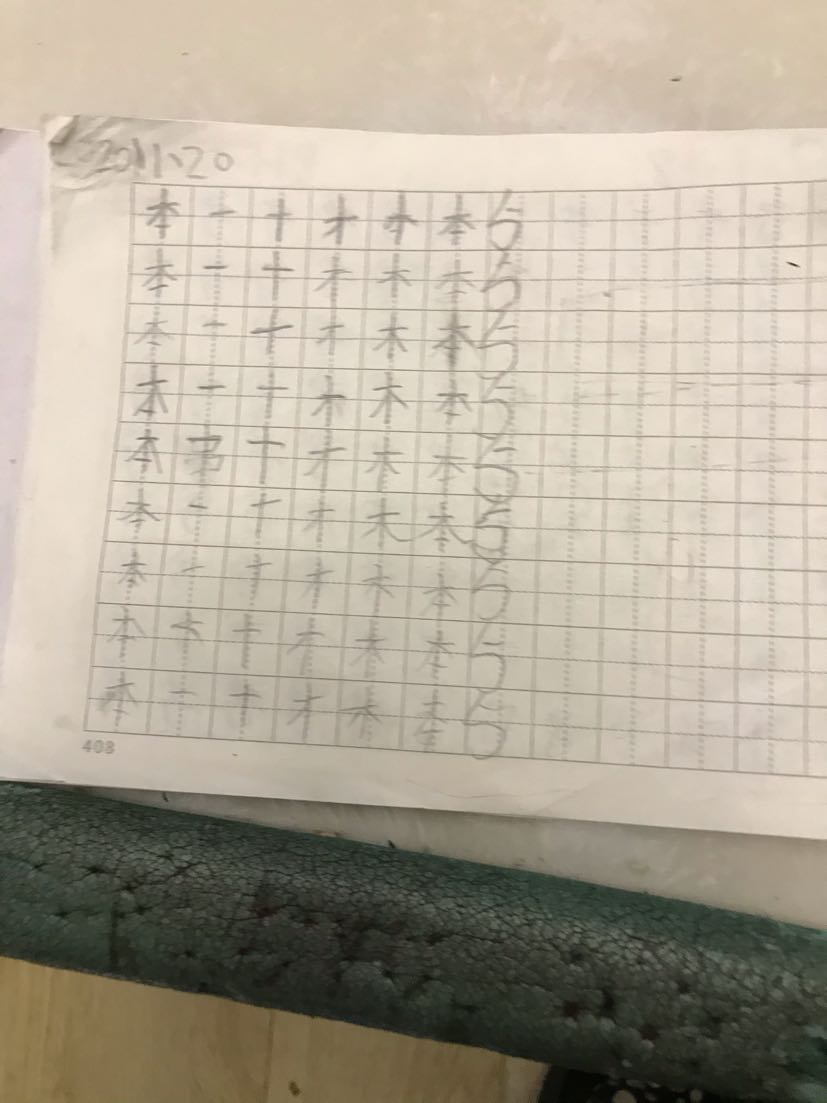 2011、20
本 一 十 才 木 本 5
本 一 十 才 木 本 5
本 一 十 才 木 本 5
本 一 十 才 木 本 5
本 十 才 木 本 5
本 一 十 才 木 本 5
本 一 十 才 木 本 5
本 十 才 木 本 5
本 一 十 才 木 本 5
408